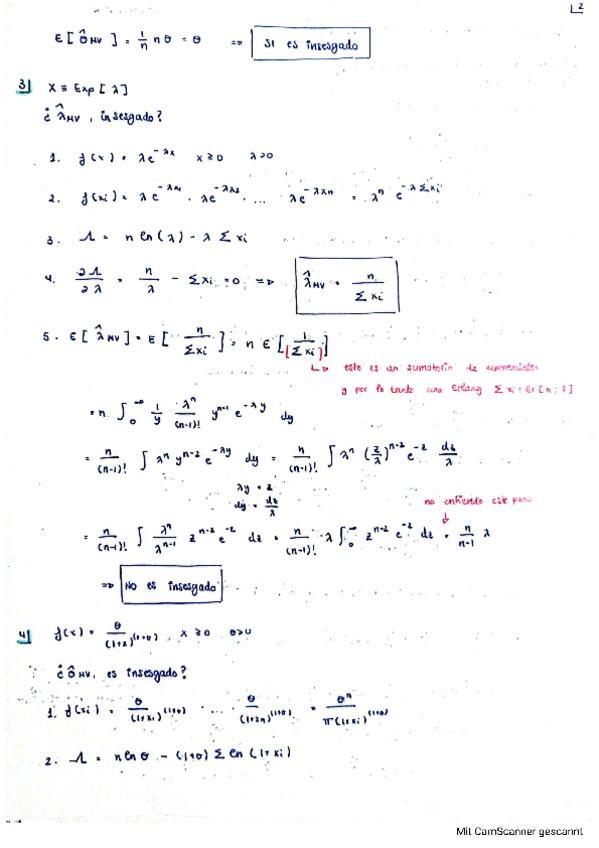 2
E[θ̂MV] = 1/n nθ = θ ⇒ SI es insesgado
3| X ≡ Exp[λ]
¿ λ̂MV, insesgado?
1. f(x) = λe^-λx x≥0 λ>0
2. f(xi) = λe^-λx1 · λe^-λx2 · ... λe^-λxn = λ^n e^-λΣxi
3. Λ = n ln(λ) - λ Σxi
4. ∂Λ/∂λ = n/λ - Σxi = 0 ⇒ λ̂MV = n/Σxi
5. E[λ̂MV] = E[n/Σxi] = n E[1/Σxi]
↳ este es un sumatorio de exponenciales
y por lo tanto una Erlang Σxi = Er[n; λ]
= n · ∫₀^∞ 1/y λ^n/(n-1)! y^n-1 e^-λy dy
= n/(n-1)! ∫ λ^n y^n-2 e^-λy dy = n/(n-1)! ∫ λ^n (z/λ)^n-2 e^-z dz/λ
λy = z
dy = dz/λ
no entiendo este paso
= n/(n-1)! ∫ λ^n/λ^n-1 z^n-2 e^-z dz = n/(n-1)! λ ∫₀^∞ z^n-2 e^-z dz = n/n-1 λ
⇒ NO es insesgado
4| f(x) = θ/(1+x)^(1+θ), x≥0 θ>0
¿ θ̂MV, es insesgado?
1. f(xi) = θ/(1+xi)^(1+θ) ... θ/(1+xn)^(1+θ) = θ^n/π(1+xi)^(1+θ)
2. Λ = n ln θ - (1+θ) Σ ln(1+xi)
Mit CamScanner gescannt